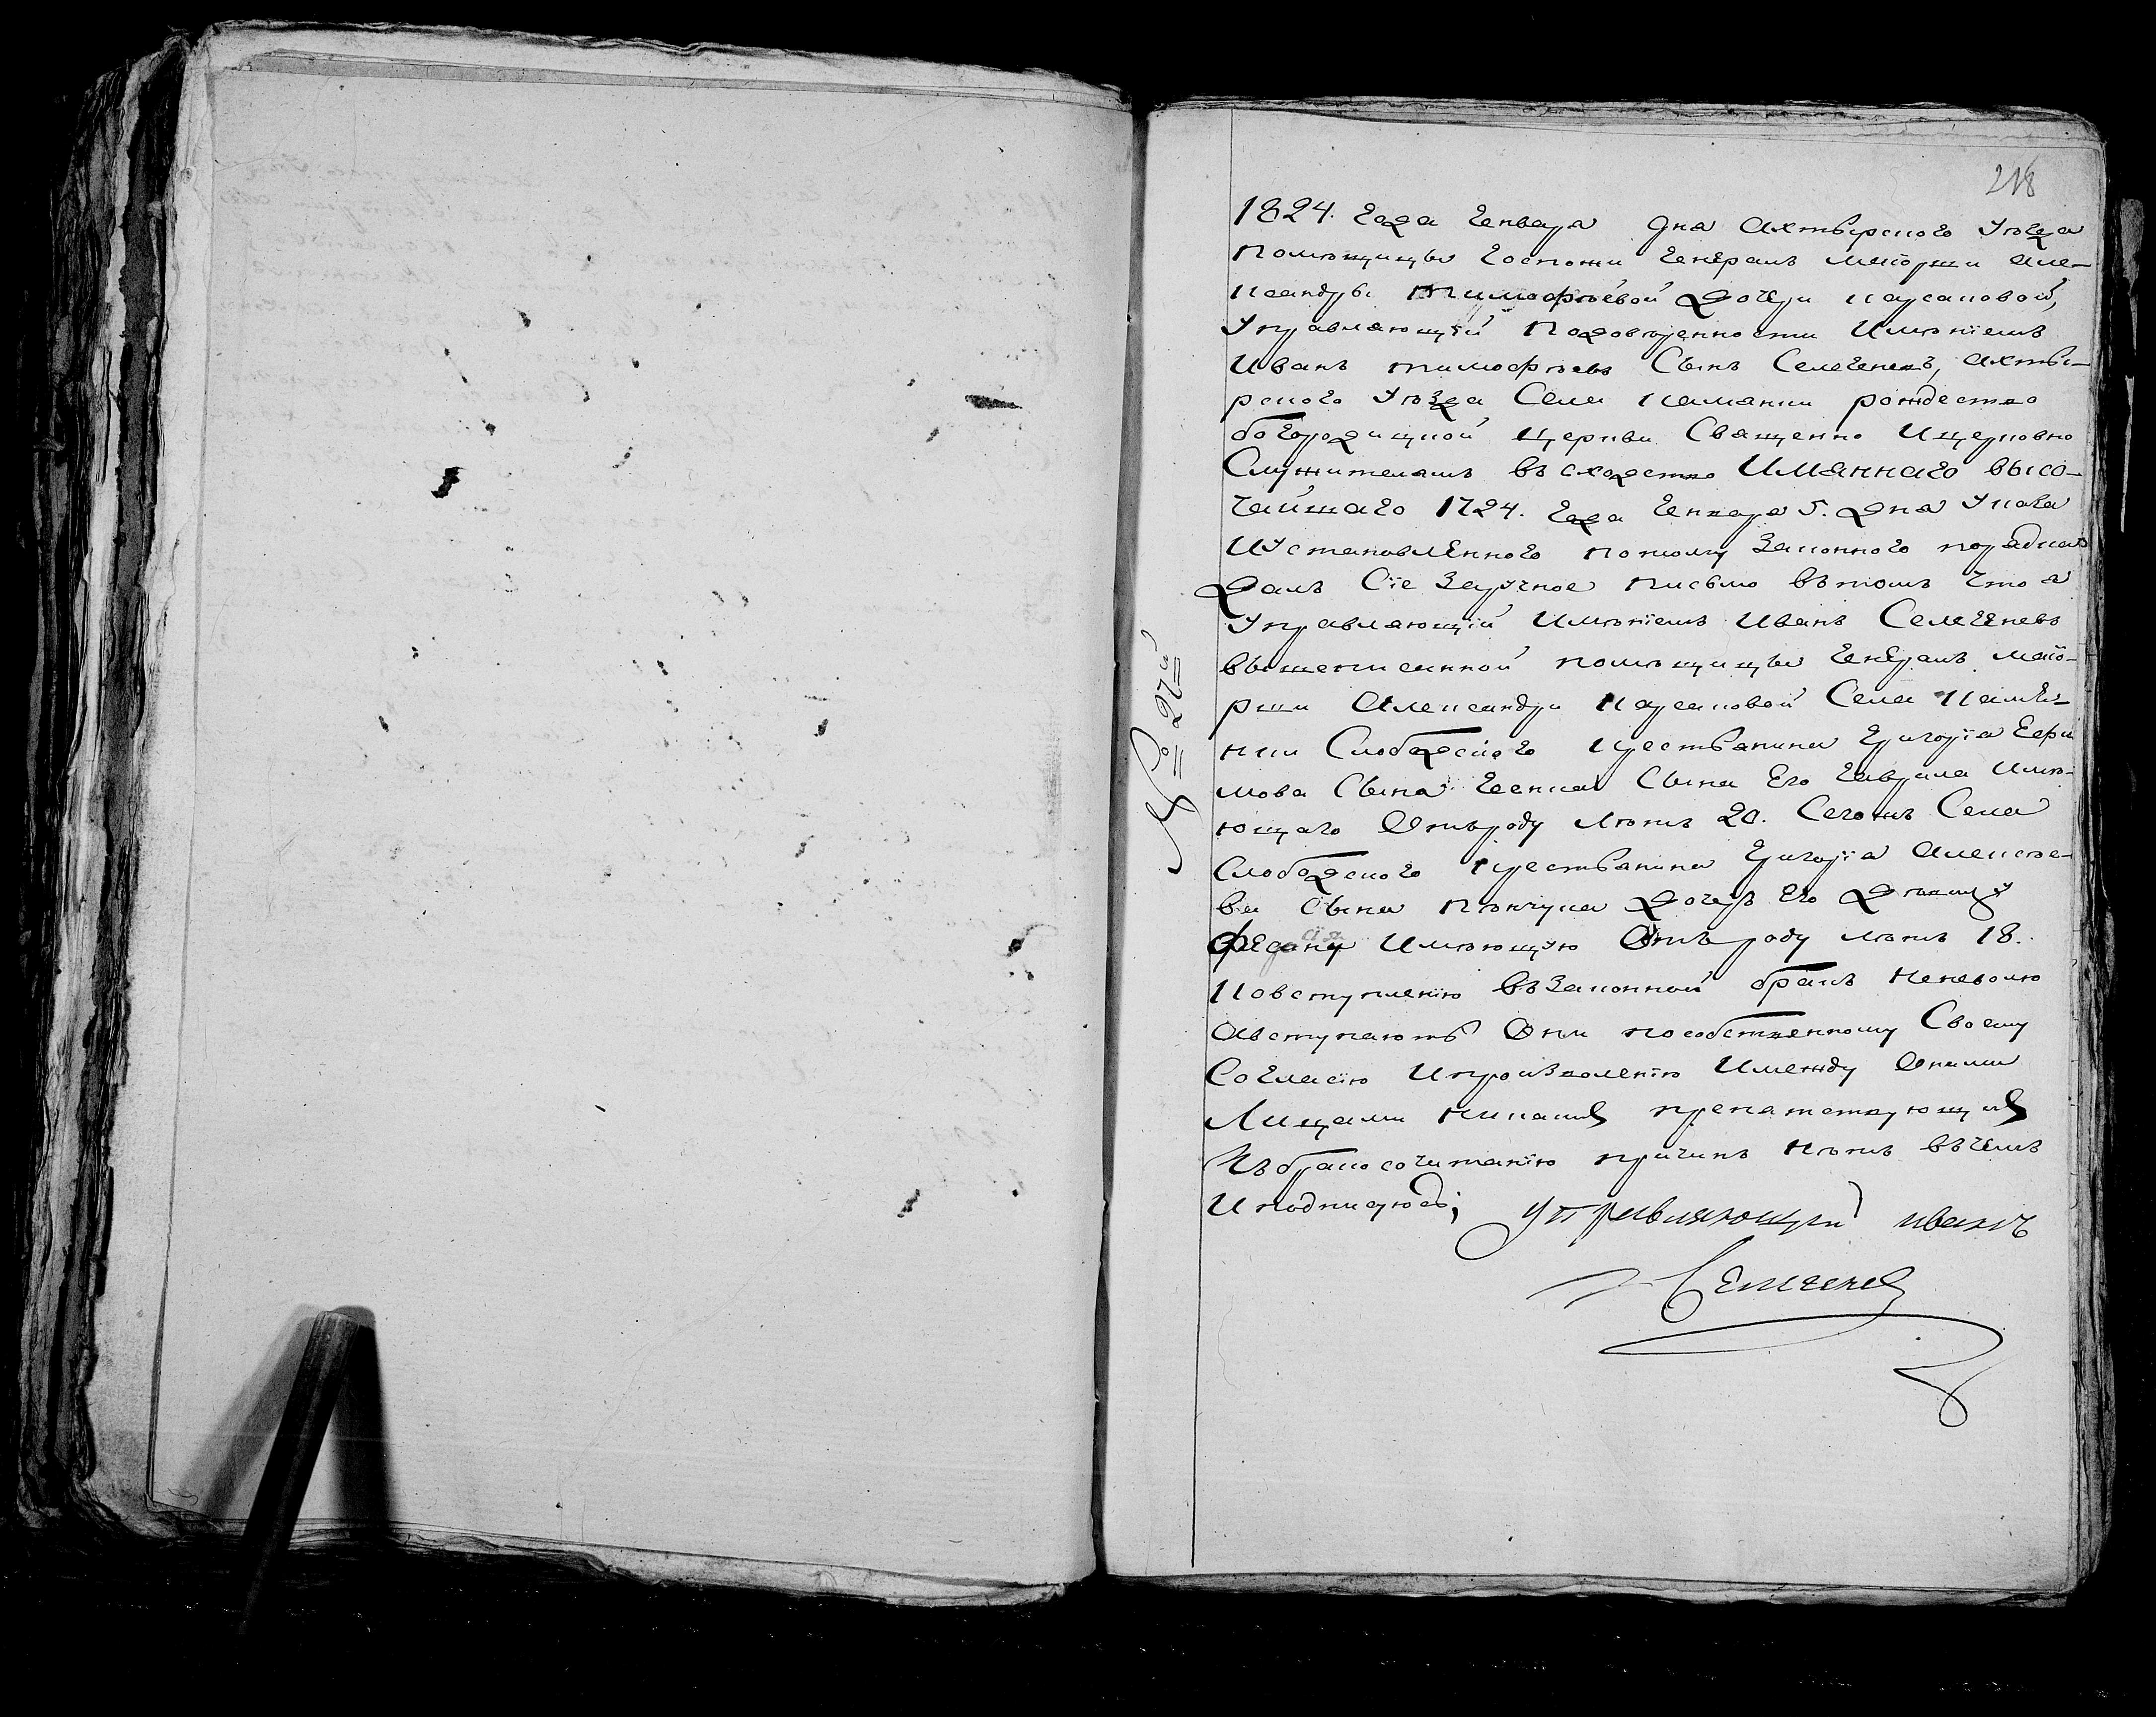 218
1824. Года Генваря дня Ахтырского Уѣзда
помѣщицы Госпожи Генералъ маіорши Але-
ксандры Тимофѣевой дочери Карсаковой,
Управляющій Подовѣренности Имѣніемъ
Иванъ тимофѣевъ Сынъ Селегеневъ, ахты-
рского Уѣзда Села Каменки рождество
богородицкой церкви Священно Ицерковно
Служителямъ въ сходство Имяннаго высо-
чайшаго 1724. Года Генваря 5. дня Указа
ИУстановленного потому Законного порядка
далъ Сіе Заручное письмо втомъ что я
Управляющій Имѣніемъ Иванъ Селегеневъ
вышеписанной помѣщицы Генералъ маіо-
рши Александры Карсаковой Села Камен-
ки Слободского крестьянина Григорія Ефи
мова Сына Сына Его Гаврила Имѣ-
ющаго Отъроду лѣтъ 20. Сегожъ Села
Слободского крестьянина Григорія Алексѣе-
ва Сына дочерь Его дѣвицу
Имѣющую Отъ роду лѣтъ 18.
Ковступленію взаконной бракъ неневолю
Авступаютъ Они пособственному Своему
Согласію Ипроизволенію Имежду Оными
Лицами никакихъ препятствующихъ
Къбракосочитанію причинъ нѣтъ вчемъ
Иподписуюсь; управляющий иванъ
Селегенев
№ 27й